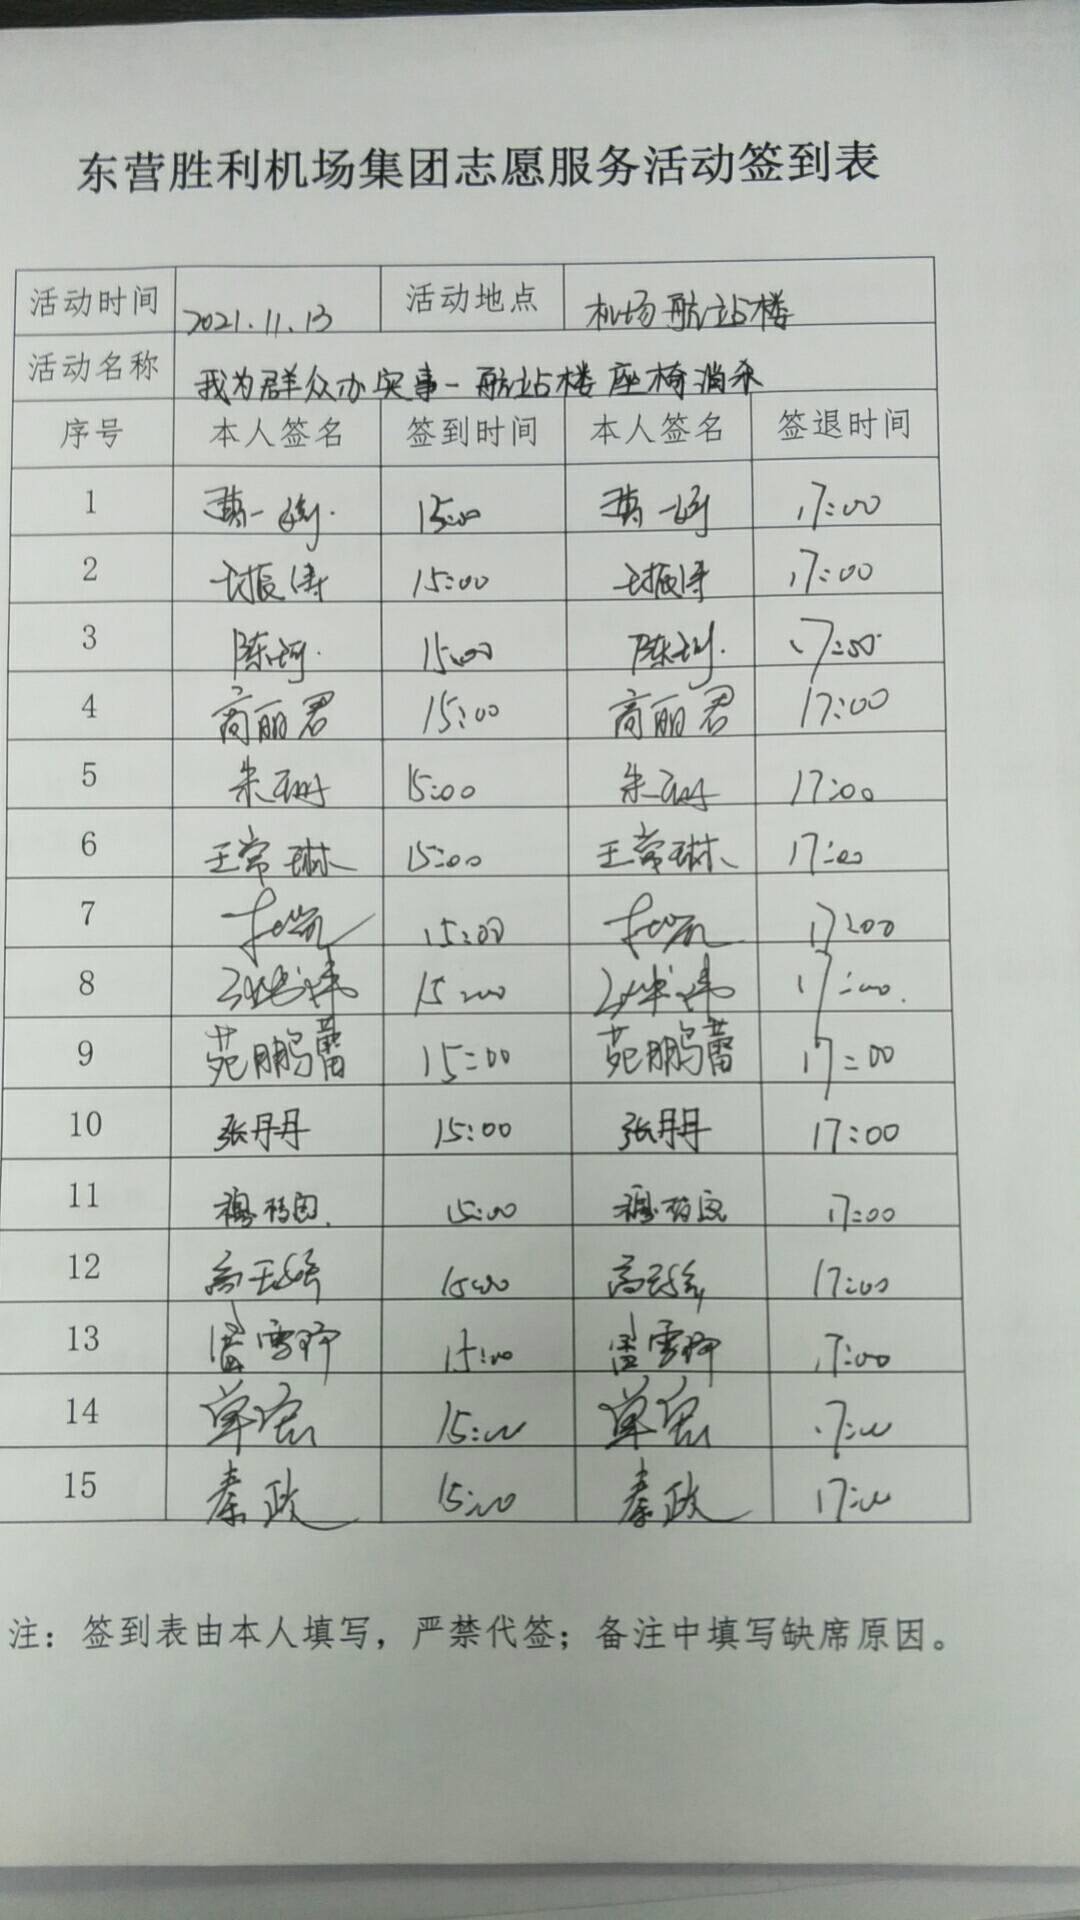 东营胜利机场集团志愿服务活动签到表
活动时间 2021.11.13 活动地点 机场航站楼
活动名称 我为群众办实事-航站楼座椅消杀
序号 本人签名 签到时间 本人签名 签退时间
1 15:00 17:00
2 15:00 17:00
3 陈珂 15:00 陈珂 17:00
4 高丽君 15:00 高丽君 17:00
5 朱珊 15:00 朱珊 17:00
6 王常琳 15:00 王常琳 17:00
7 15:00 17:00
8 15:00 17:00
9 苑鹏蕾 15:00 苑鹏蕾 17:00
10 张丹丹 15:00 张丹丹 17:00
11 15:00 17:00
12 15:00 17:00
13 15:00 17:00
14 单宏 15:00 单宏 17:00
15 秦政 15:00 秦政 17:00
注：签到表由本人填写，严禁代签；备注中填写缺席原因。